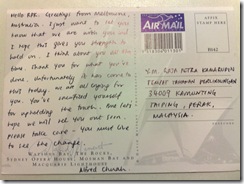 Hello RPK. Greetings from Melbourne,
Australia. I just want to let you
know that we are with you and
I hope that gives you strength to
hold on. I think about you all the
time. Thank you for what you've
done. Unfortunately it has come to
this today. We are all crying for
you. You've sacrificed yourself
for upholding the truth. And let's
hope we will see you out soon.
Please take care - You must live
to see the change.
THE ROCKS,
SYDNEY OPERA HOUSE, MOSMAN BAY AND
MACQUARIE LIGHTHOUSE
AIR MAIL
AFFIX
STAMP
HERE
Y.M RAJA PETRA KAMARUDIN
TEMPAT TAHANAN PERLINDUNGAN
34009 KAMUNTING
TAIPING, PERAK,
MALAYSIA.